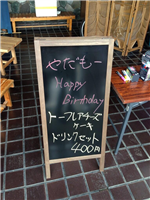 やだもー
Happy
Birthday
トーフレアチーズ
ケーキ
ドリンクセット
400円